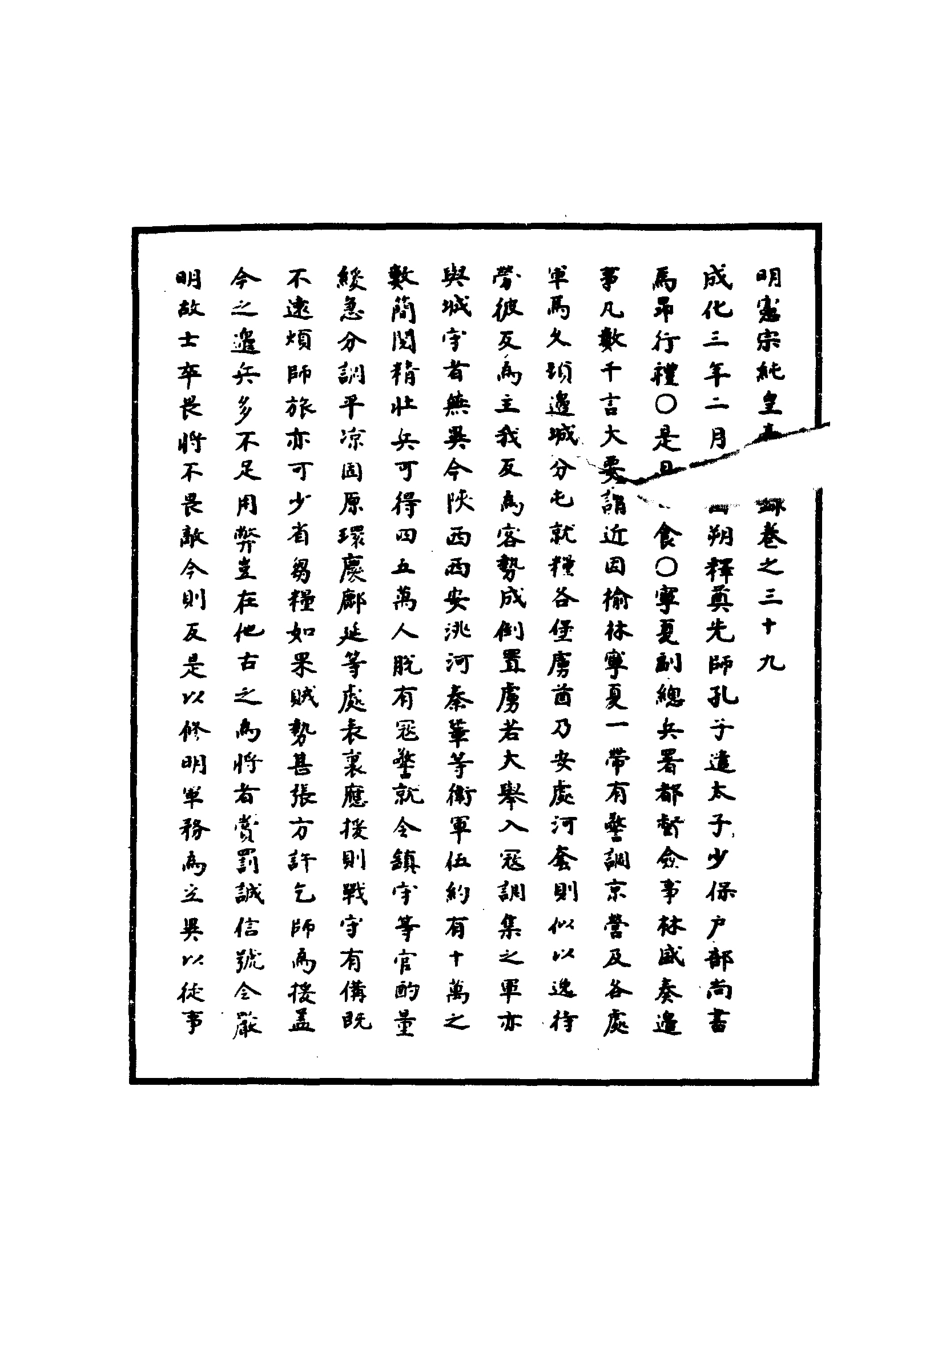 明憲宗純皇錄卷之三十九
成化三年二月朔釋奠先師孔子遣太子少保户部尚書
馬昂行禮〇是日食〇寧夏副總兵署都督僉事林盛奏邊
事凡數千言大要謂近因榆林寧夏一帶有警調京營及各處
軍馬久頓邊城分屯就糧各堡虜酋乃安處河套則似以逸待
勞彼反為主我反為客勢成倒置虜若大舉入冦調集之軍亦
與城守者無異今陕西西安洮河秦華等衛軍伍約有十萬之
數簡閲精壯兵可得四五萬人脱有冦警就令鎮守等官酌量
緩急分調平凉固原環慶鄜延等處表裏應援則戰守有備既
不遠煩師旅亦可少省芻糧如果賊勢甚張方許乞師為援盖
今之邉兵多不足用弊豈在他古之為將者賞罰誠信號令嚴
明故士卒畏將不畏敵今則反是以修明軍務為立異以徒事